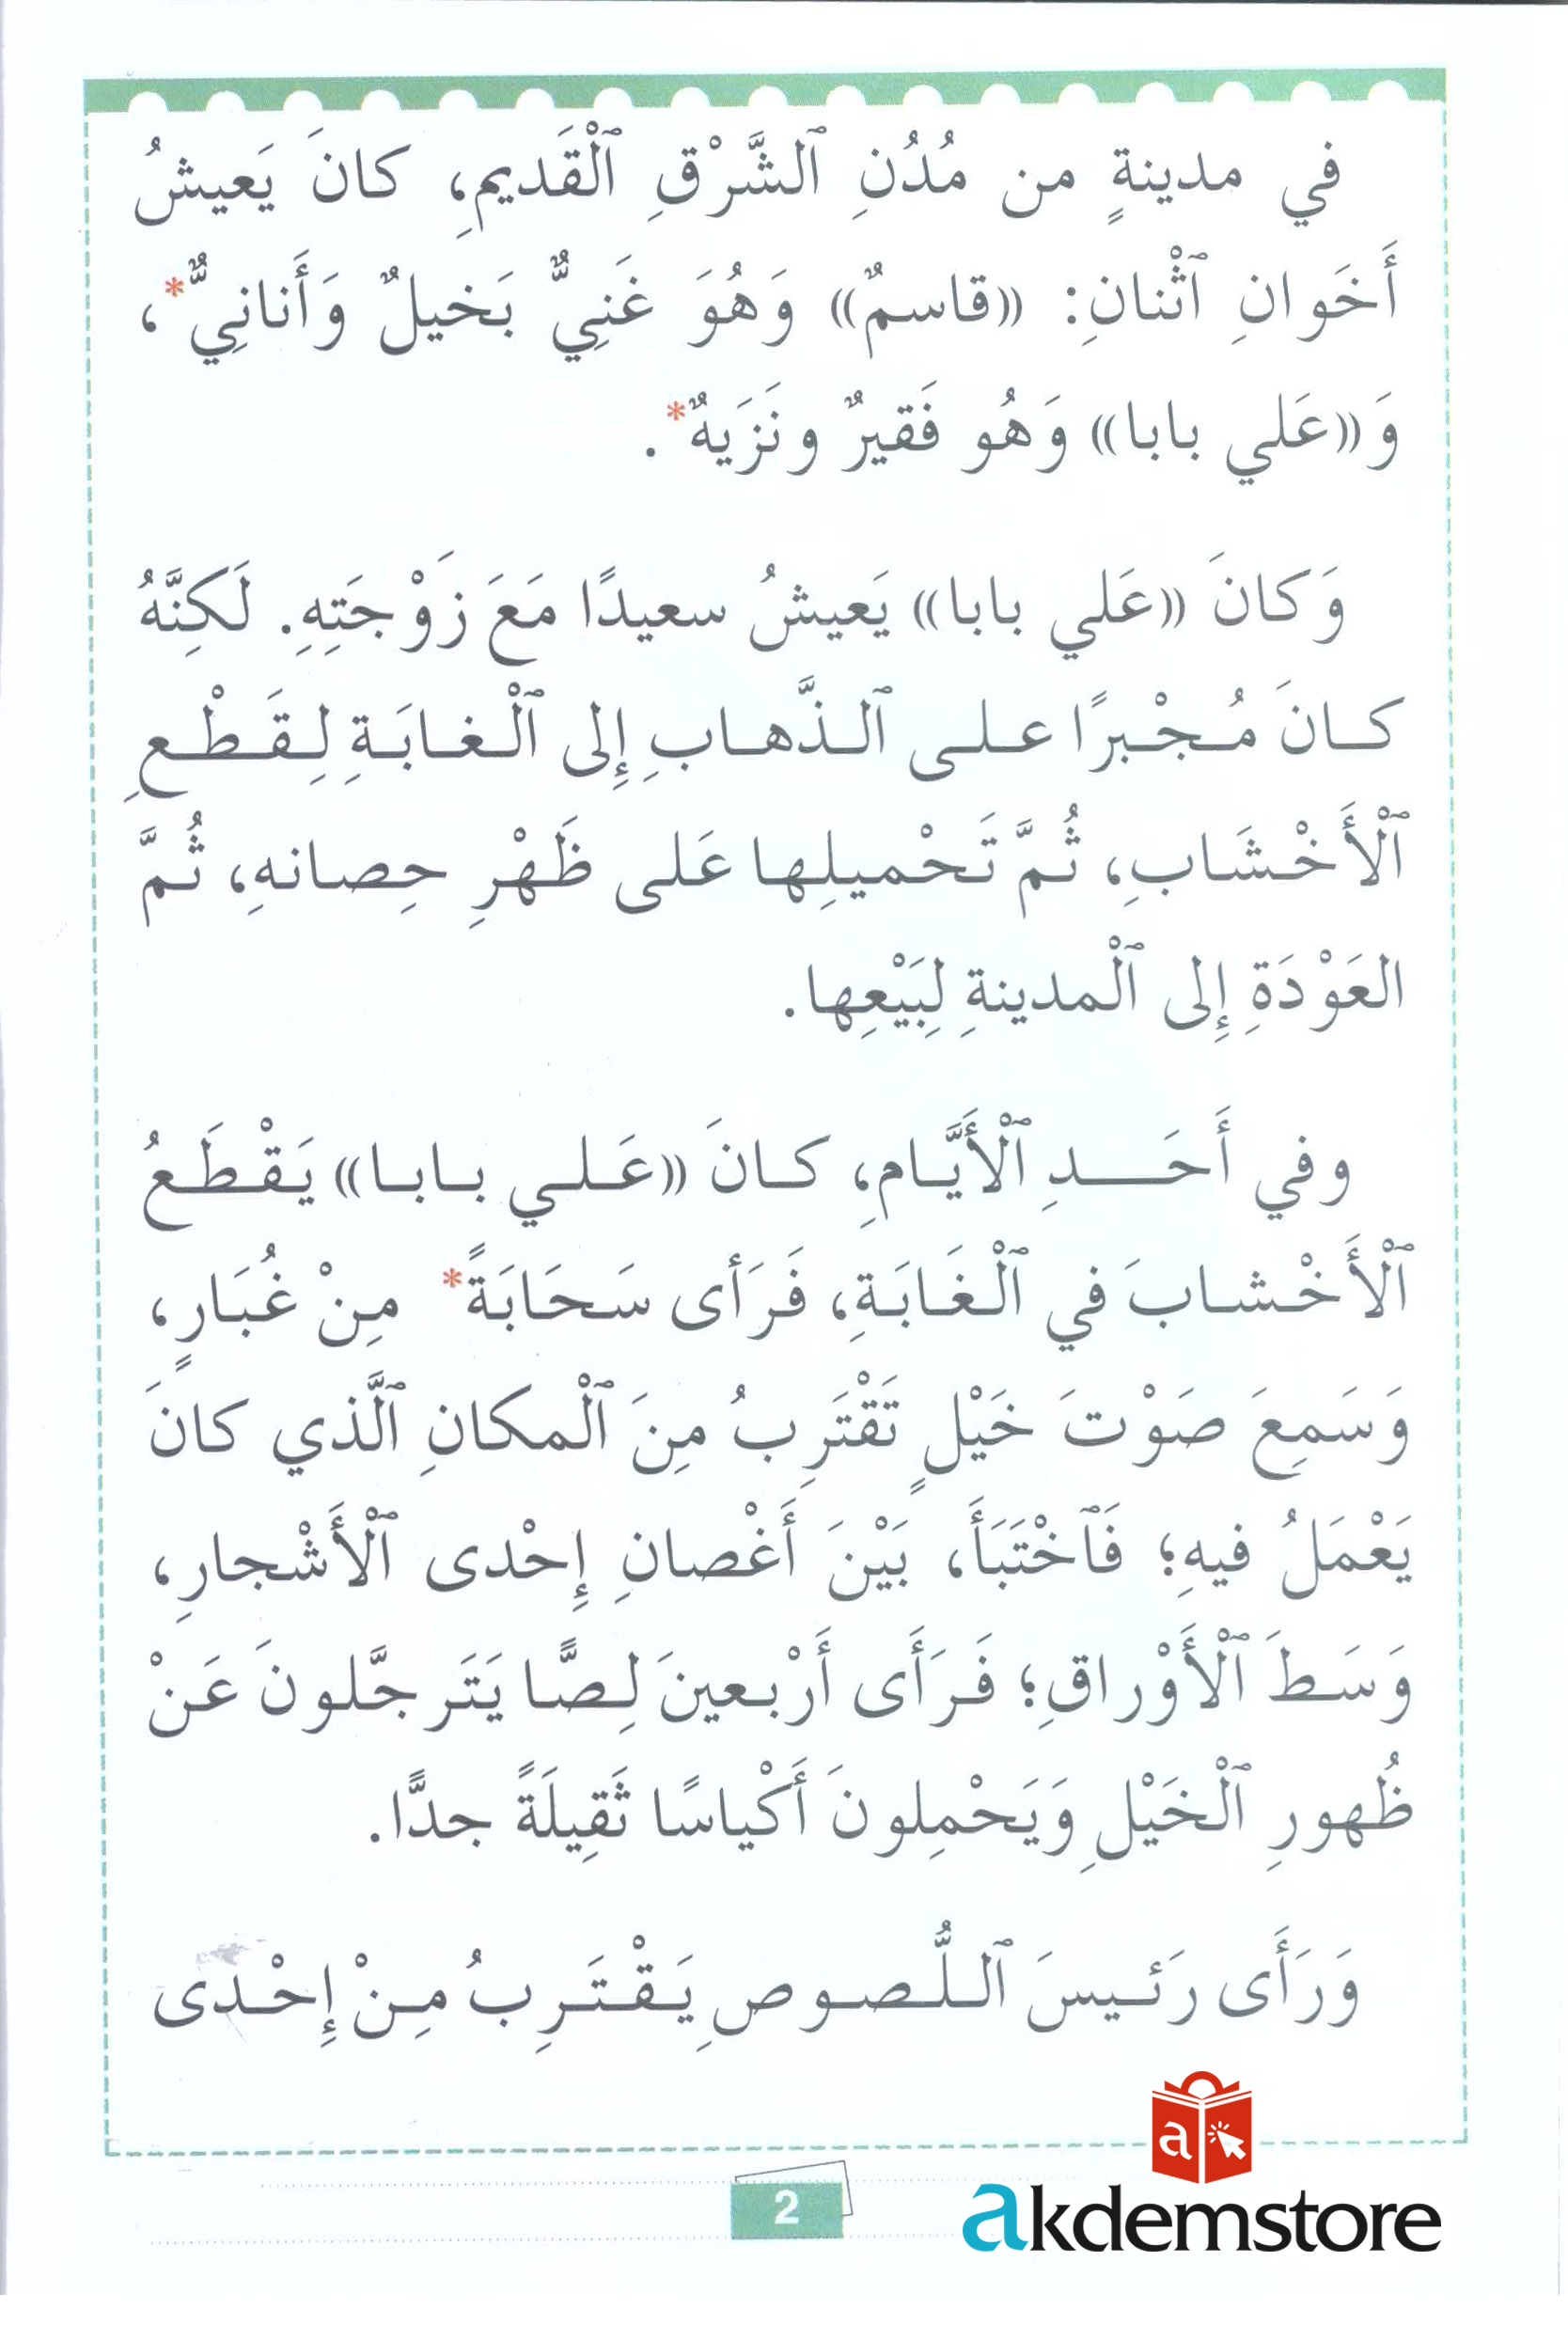 في مدينةٍ من مُدُنِ ٱلشَّرْقِ ٱلْقَديمِ، كانَ يَعيشُ
أَخَوانِ ٱثْنانِ: «قاسمٌ» وَهُوَ غَنِيٌّ بَخيلٌ وَأَنانِيٌّ*،
وَ«عَلي بابا» وَهُو فَقيرٌ ونَزَيهٌ*.
وَكانَ «عَلي بابا» يَعيشُ سعيدًا مَعَ زَوْجَتِهِ. لَكِنَّهُ
كانَ مُجْبرًا على ٱلذَّهابِ إِلى ٱلْغابَةِ لِقَطْعِ
ٱلْأَخْشَابِ، ثُمَّ تَحْميلِها عَلى ظَهْرِ حِصانهِ، ثُمَّ
العَوْدَةِ إِلى ٱلْمدينةِ لِبَيْعِها.
وفي أَحَدِ ٱلْأَيَّامِ، كانَ «عَلي بابا» يَقْطَعُ
ٱلْأَخْشابَ في ٱلْغَابَةِ، فَرَأى سَحَابَةً* مِنْ غُبَارٍ،
وَسَمِعَ صَوْتَ خَيْلٍ تَقْتَرِبُ مِنَ ٱلْمكانِ ٱلَّذي كانَ
يَعْمَلُ فيهِ؛ فَٱخْتَبَأَ، بَيْنَ أَغْصانِ إِحْدى ٱلْأَشْجارِ،
وَسَطَ ٱلْأَوْراقِ؛ فَرَأَى أَرْبعينَ لِصًّا يَتَرجَّلونَ عَنْ
ظُهورِ ٱلْخَيْلِ وَيَحْمِلونَ أَكْياسًا ثَقِيلَةً جدًّا.
وَرَأَى رَئيسَ ٱللُّصوصِ يَقْتَرِبُ مِنْ إِحْدى
2
a
akdemstore